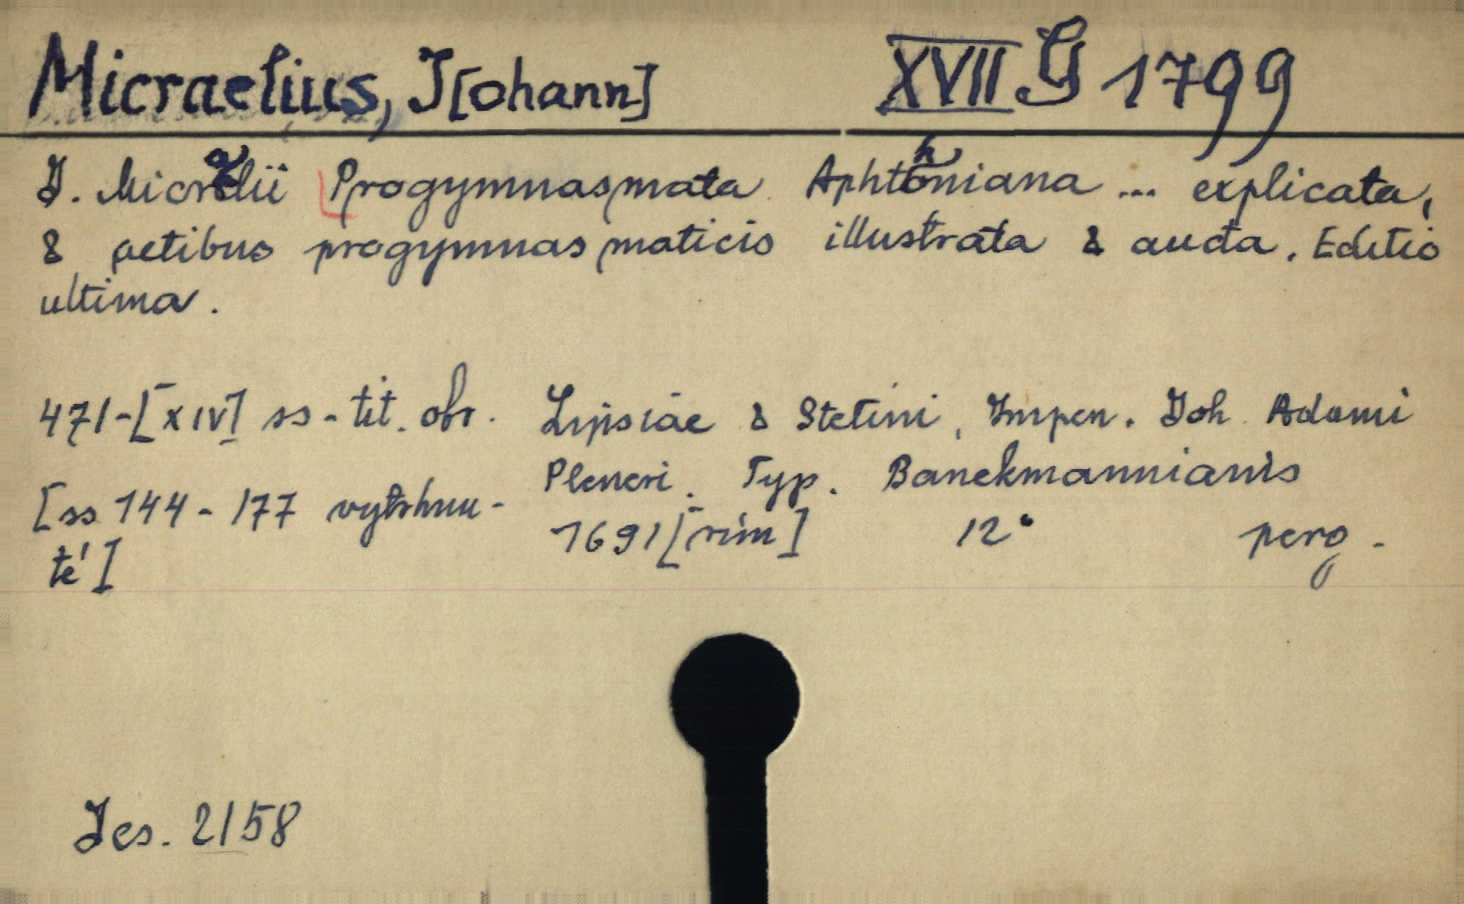 Micraelius, J[ohann] XVII G 1799
J. Micrælii Progymnasmata Aphthoniana ... explicata,
& actibus progymnasmaticis illustrata & aucta. Editio
ultima.
471-[XIV] ss - tit. obr. Lipsiae & Stetini, Impen. Joh. Adami
Pleneri. Typ. Banekmannianis
[ss 144-177 vytrhnu-
1691 [rím] 12° perg.
té]
Jes. 2158